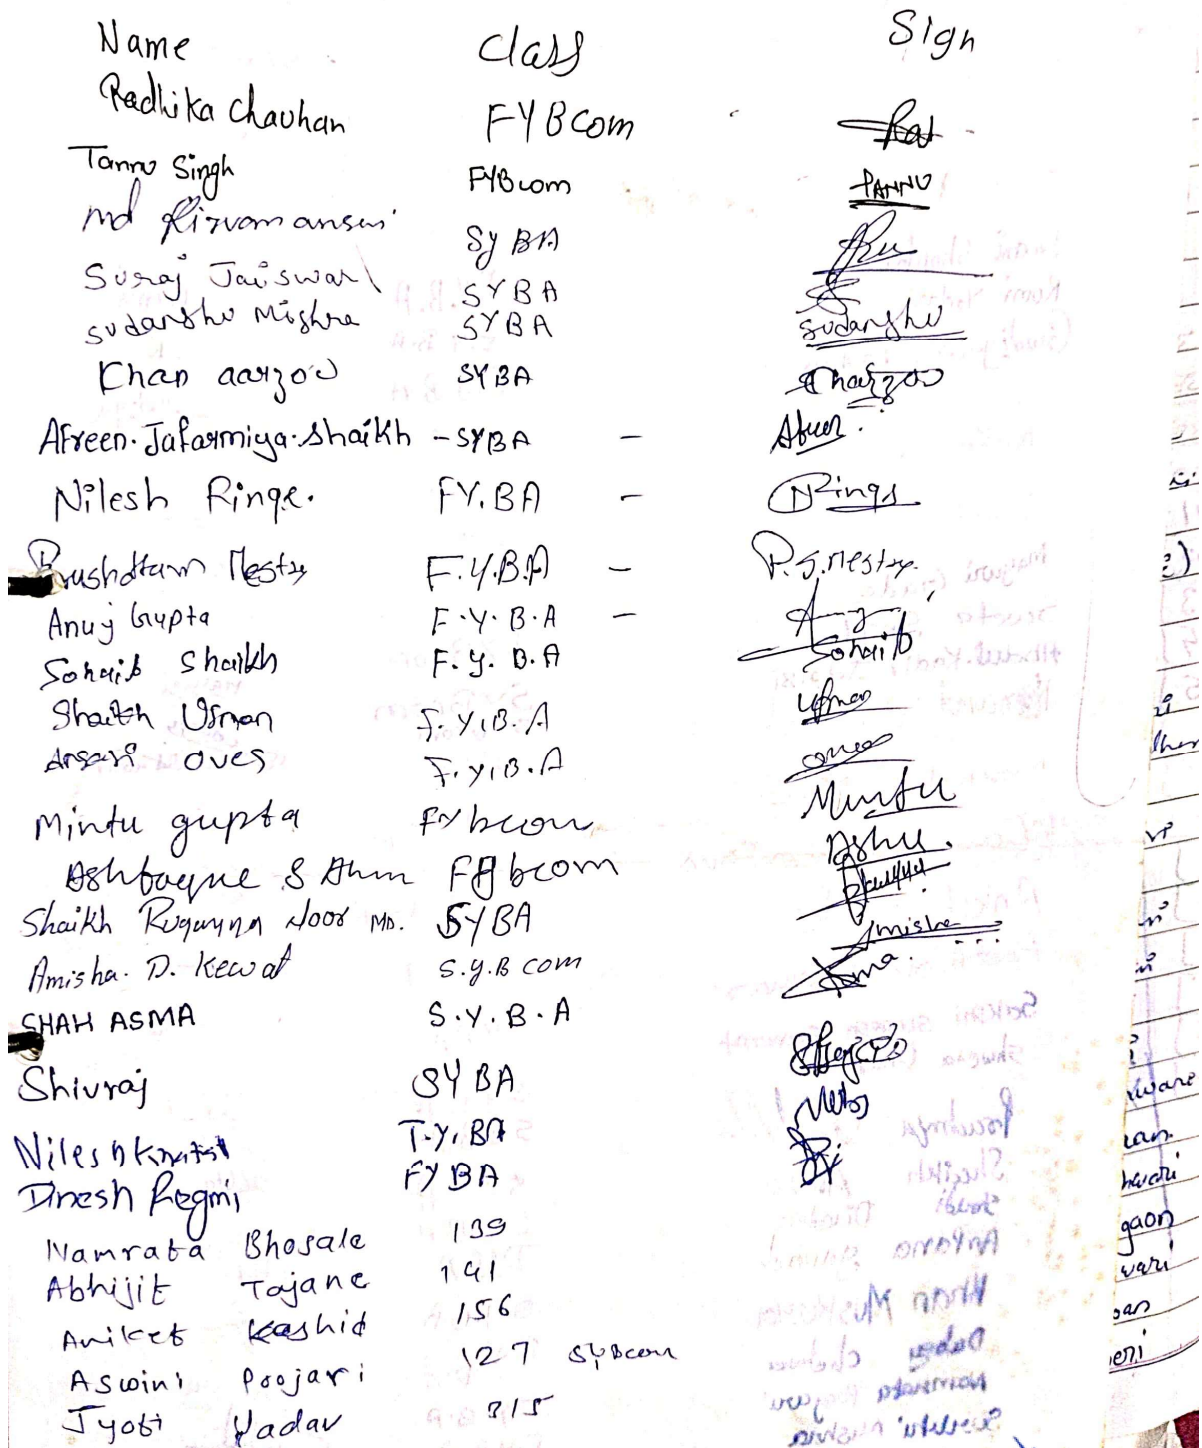 Name Class Sign
Radhika Chauhan FYBcom
Tannu Singh FYBcom TANNU
md Rizvan ansari SyBA
Suraj Jaiswal SYBA
Sudanshu Mishra SYBA Sudanshu
Khan aarzoo SYBA
Afreen. Jafarmiya. Shaikh - SYBA -
Nilesh Ringe. FY.BA - Ringe
Prushottam Mestry F.Y.B.A - P.S.Mestry.
Anuj Gupta F.Y.B.A - Anuj
Sohaib Shaikh F.Y.B.A Sohaib
Shaikh Usman F.Y.B.A Usman
Ansari Oves F.Y.B.A
Mintu gupta FYbcom Mintu
FYbcom Ashu.
Shaikh Noor MD. SYBA
Amisha. D. Kewat S.y.B com Amisha
SHAH ASMA S.Y.B.A Asma.
Shivraj SYBA
Nilesh T.Y.BA
Dinesh Regmi FYBA
Namrata Bhosale 139
Abhijit Tajane 141
Aniket Kashid 156
Aswini Poojari 127 SyBcom
Jyoti Yadav 315